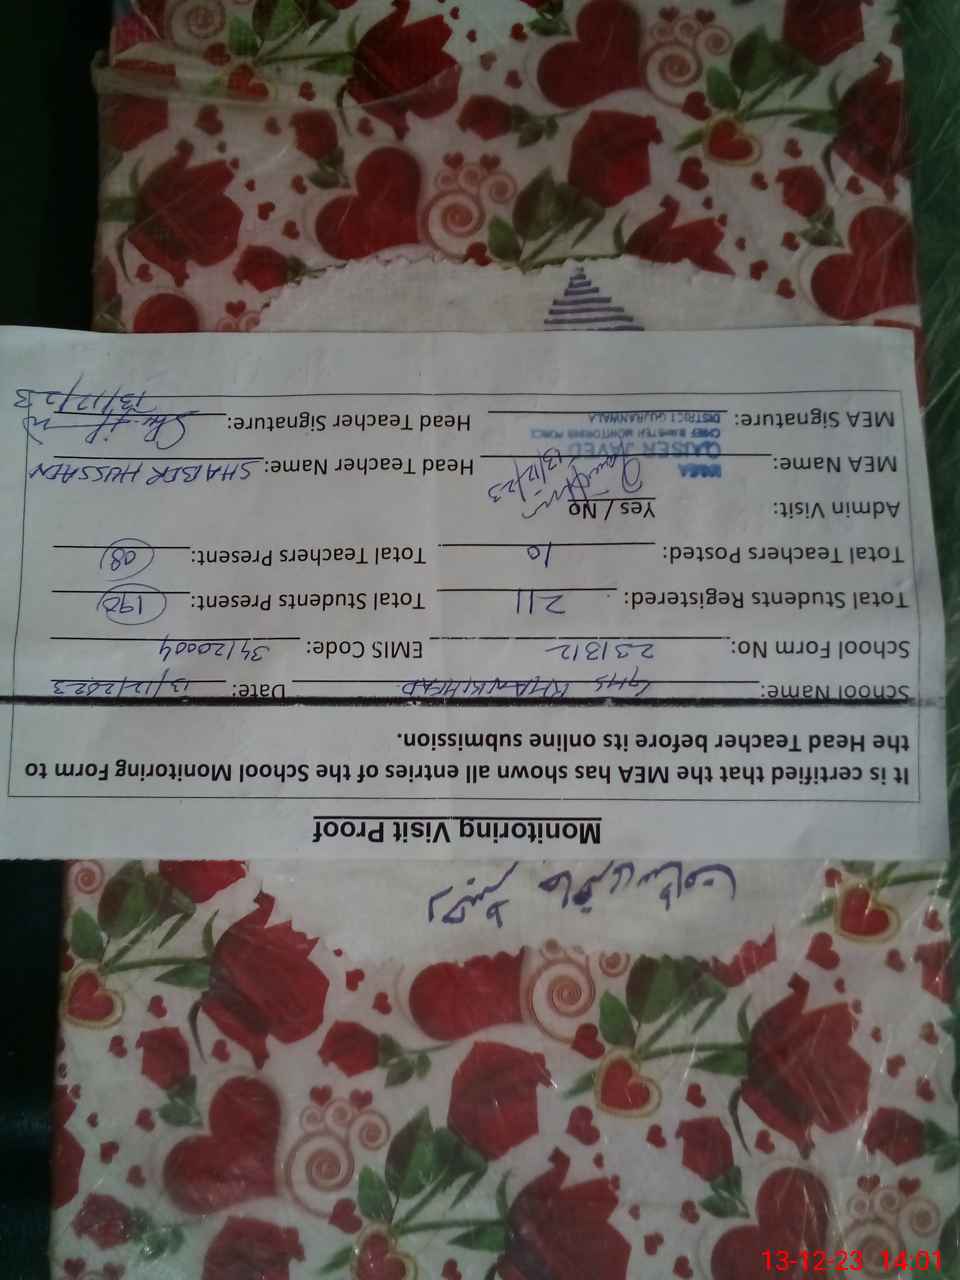 Monitoring Visit Proof
It is certified that the MEA has shown all entries of the School Monitoring Form to
the Head Teacher before its online submission.
School Name: GHS KHANKI HEAD Date: 13/12/2023
School Form No: 231312 EMIS Code: 34120004
Total Students Registered: 211 Total Students Present: 198
Total Teachers Posted: 10 Total Teachers Present: 08
Admin Visit: Yes / No
13/12/23
MEA
MEA Name: QAISER JAVED Head Teacher Name: SHABIR HUSSAIN
CHIEF MINISTER MONITORING FORCE
MEA Signature: DISTRICT GUJRANWALA Head Teacher Signature:
13/12/23
13-12-23 14:01